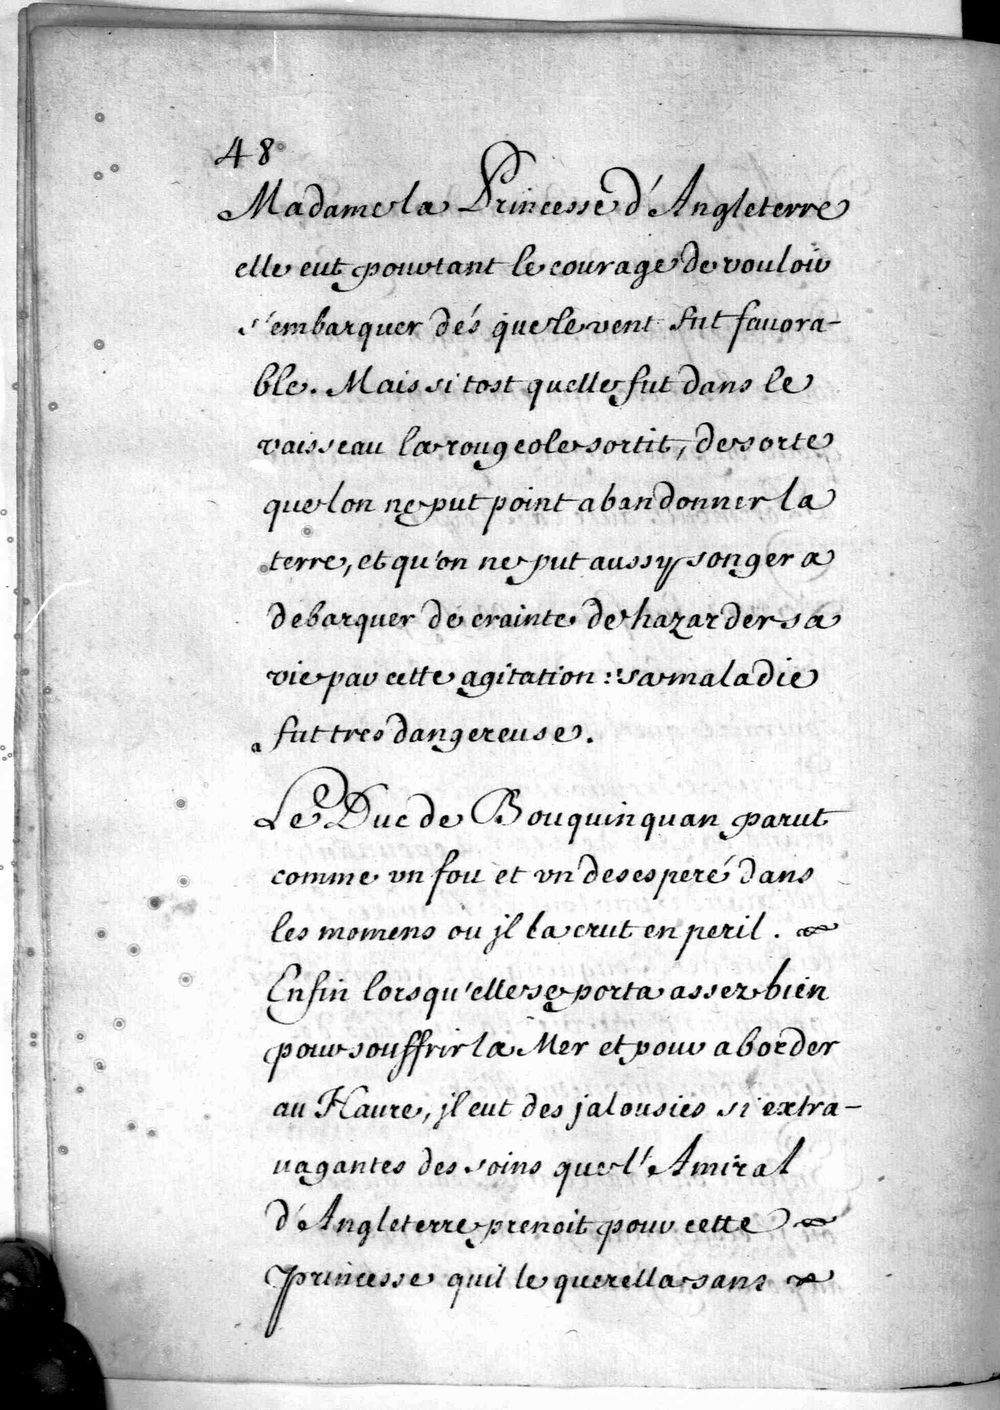 48
Madame la Princesse d'Angleterre
elle eut pourtant le courage de vouloir
s'embarquer dés que le vent fut favora-
ble. Mais si tost quelle fut dans le
vaisseau la rougeole sortit, de sorte
que lon ne put point abandonner la
terre, et qu'on ne put aussy songer a
debarquer de crainte de hazarder sa
vie par cette agitation : sa maladie
fut tres dangereuse.
Le Duc de Bouquinquan parut
comme vn fou et vn desesperé dans
les momens ou jl la crut en peril.
Enfin lorsqu'elle se porta assez bien
pour souffrir la Mer et pour aborder
au Haure, jl eut des jalousies si extra-
uagantes des soins que l'Amiral
d'Angleterre prenoit pour cette
princesse quil le querella sans